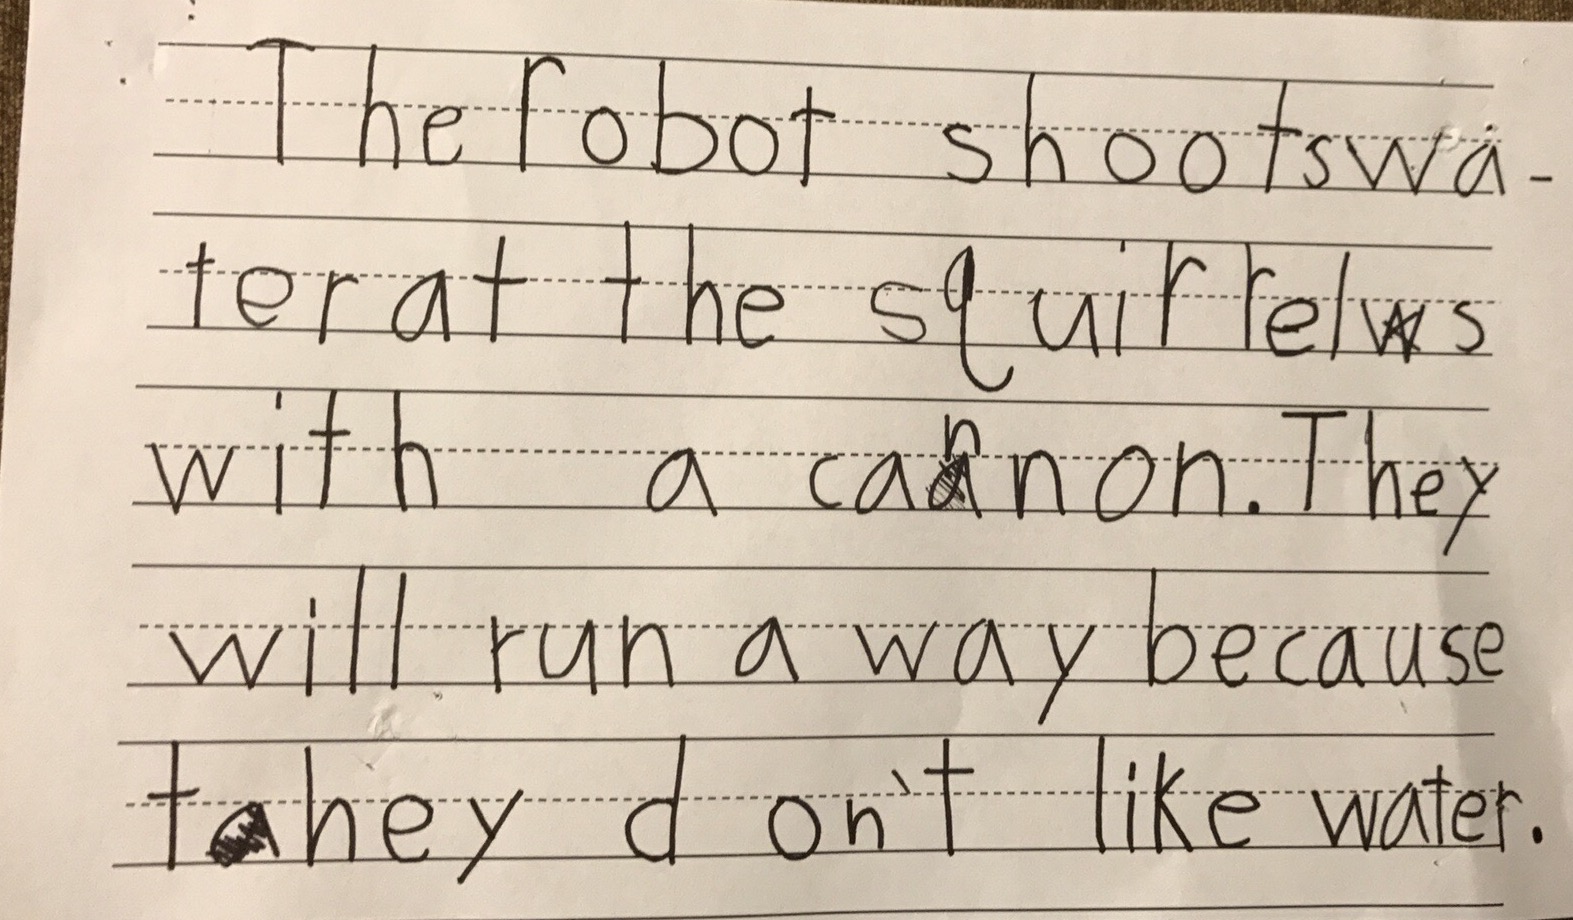 The robot shoots wa-
ter at the squirrels
with a cannon. They
will run a way because
they don't like water.